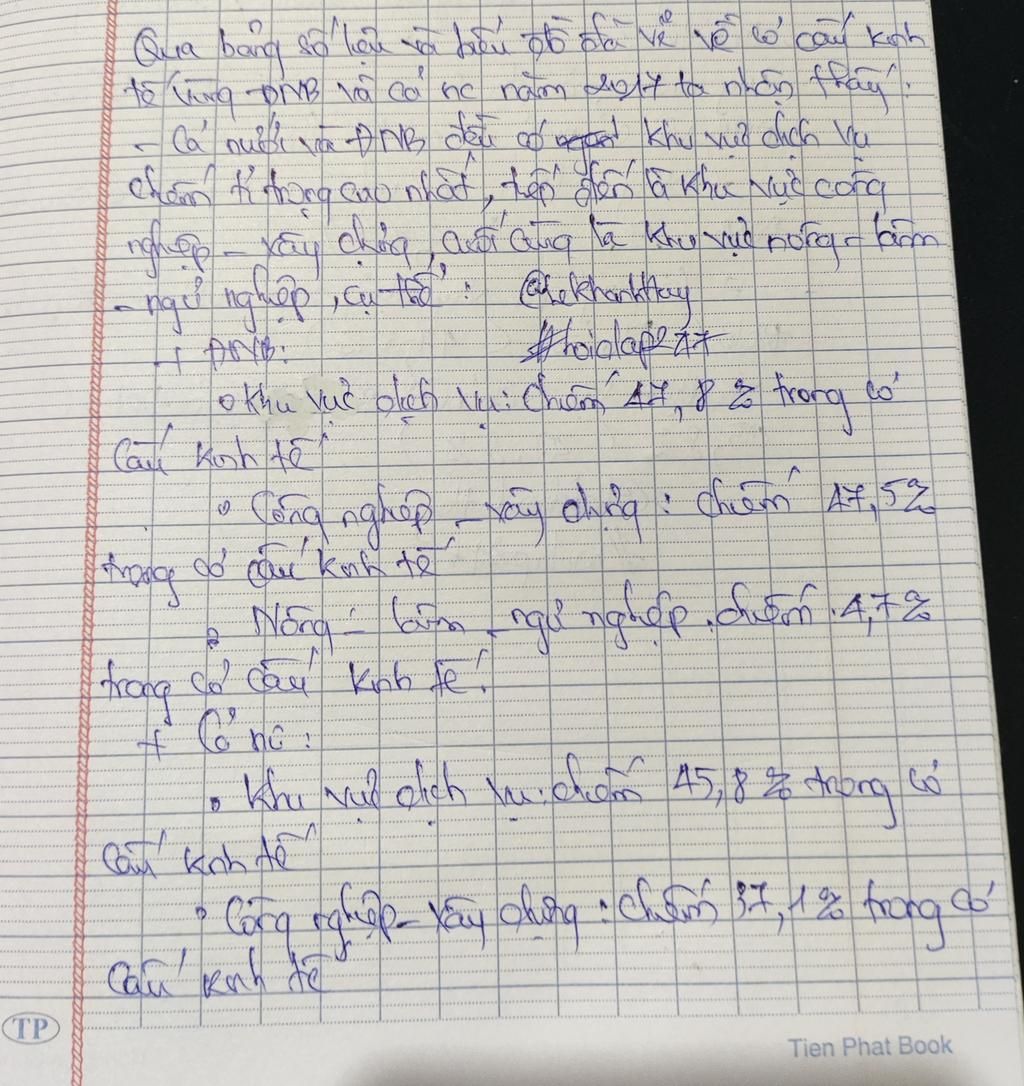 Qua bảng số liệu và biểu đồ đã vẽ về cơ cấu kinh
tế vùng ĐNB và cả nc năm 2017 ta nhận thấy:
- Cả nước và ĐNB đều có khu vực dịch vụ
chiếm tỉ trọng cao nhất, tiếp đến là khu vực công
nghiệp - xây dựng, cuối cùng là khu vực nông - lâm
- ngư nghiệp, cụ thể: @lekhanhHay
+ ĐNB: #hoidap247
• Khu vực dịch vụ: chiếm 47,8 % trong cơ
cấu kinh tế
• Công nghiệp - xây dựng: chiếm 47,5%
trong cơ cấu kinh tế
• Nông - lâm - ngư nghiệp: chiếm 4,7%
trong cơ cấu kinh tế.
+ Cả nc:
• Khu vực dịch vụ: chiếm 45,8 % trong cơ
cấu kinh tế
• Công nghiệp - xây dựng: chiếm 37,1% trong cơ
cấu kinh tế
TP
Tien Phat Book